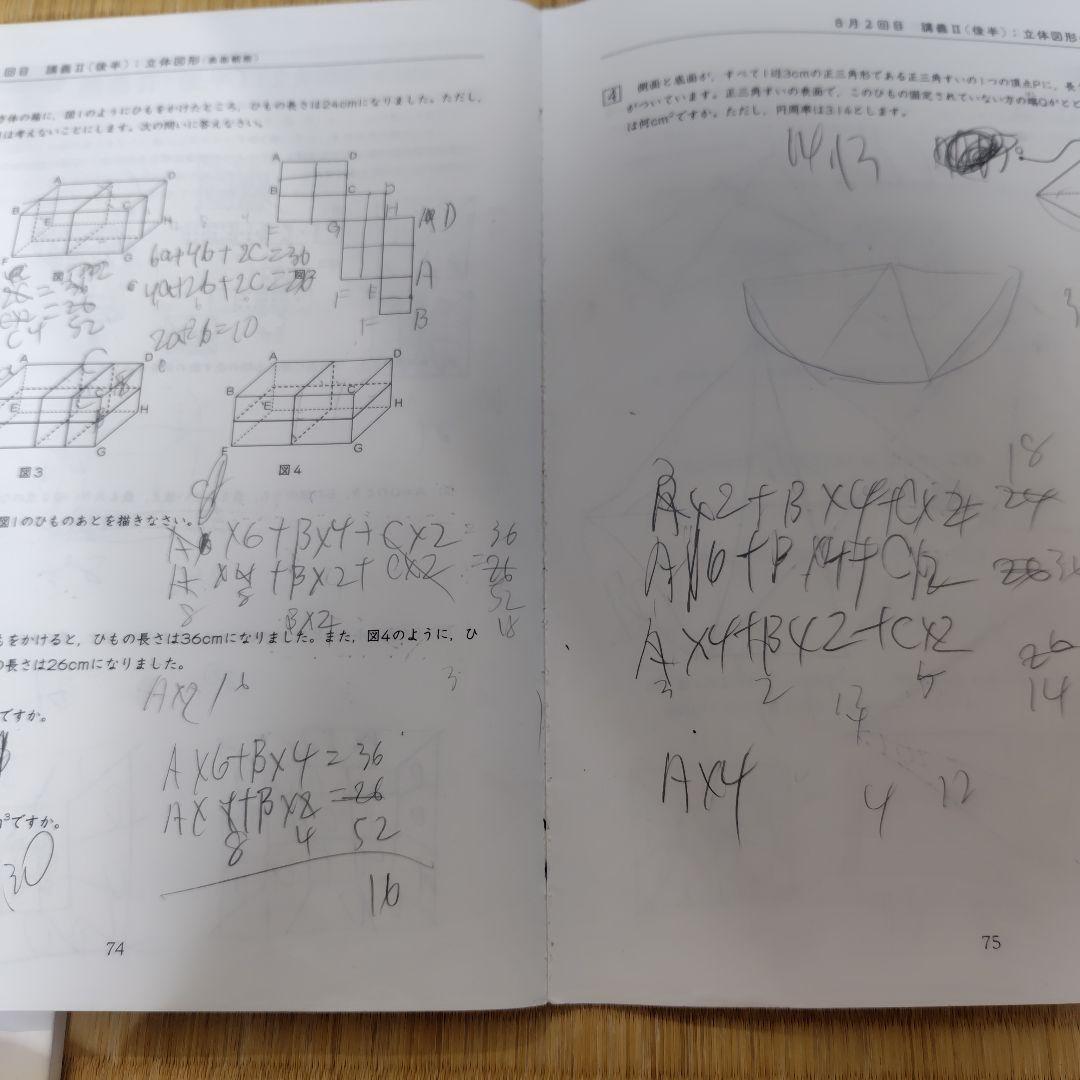 回目 講義Ⅱ(後半):立体図形(表面観察)
方体の箱に,図1のようにひもをかけたところ,ひもの長さは24cmになりました。ただし,
は考えないことにします。次の問いに答えなさい。
A D
B C
E H
F G
A D
B C D
F G H
D
A
F E
F B
6a+4b+2C=36
4a+2b+2C=26
2a+2b=10
A D
E H
G
図3
A D
B C
E H
F G
図4
図1のひものあとを描きなさい。
A X6+BX4+CX2=36
A X4+BX2+CX2=26
8 8 52
BX4 18
もをかけると,ひもの長さは36cmになりました。また,図4のように,ひ
の長さは26cmになりました。
AX2 16
3
ですか。
AX6+BX4=36
AX4+BX2=26
8 4 52
16
³ですか。
30
74
8月2回目 講義Ⅱ(後半):立体図形
4 側面と底面が,すべて1辺3cmの正三角形である正三角すいの1つの頂点Pに,長
がついています。正三角すいの表面で,このひもの固定されていない方の端Qがとど
は何cm²ですか。ただし,円周率は3.14とします。
14.13
18
AX2+BX4+CX2 24
AX6+BX4+CX2
AX4+BX2+CX2 26
3 2 5 14
AX4
4 12
75